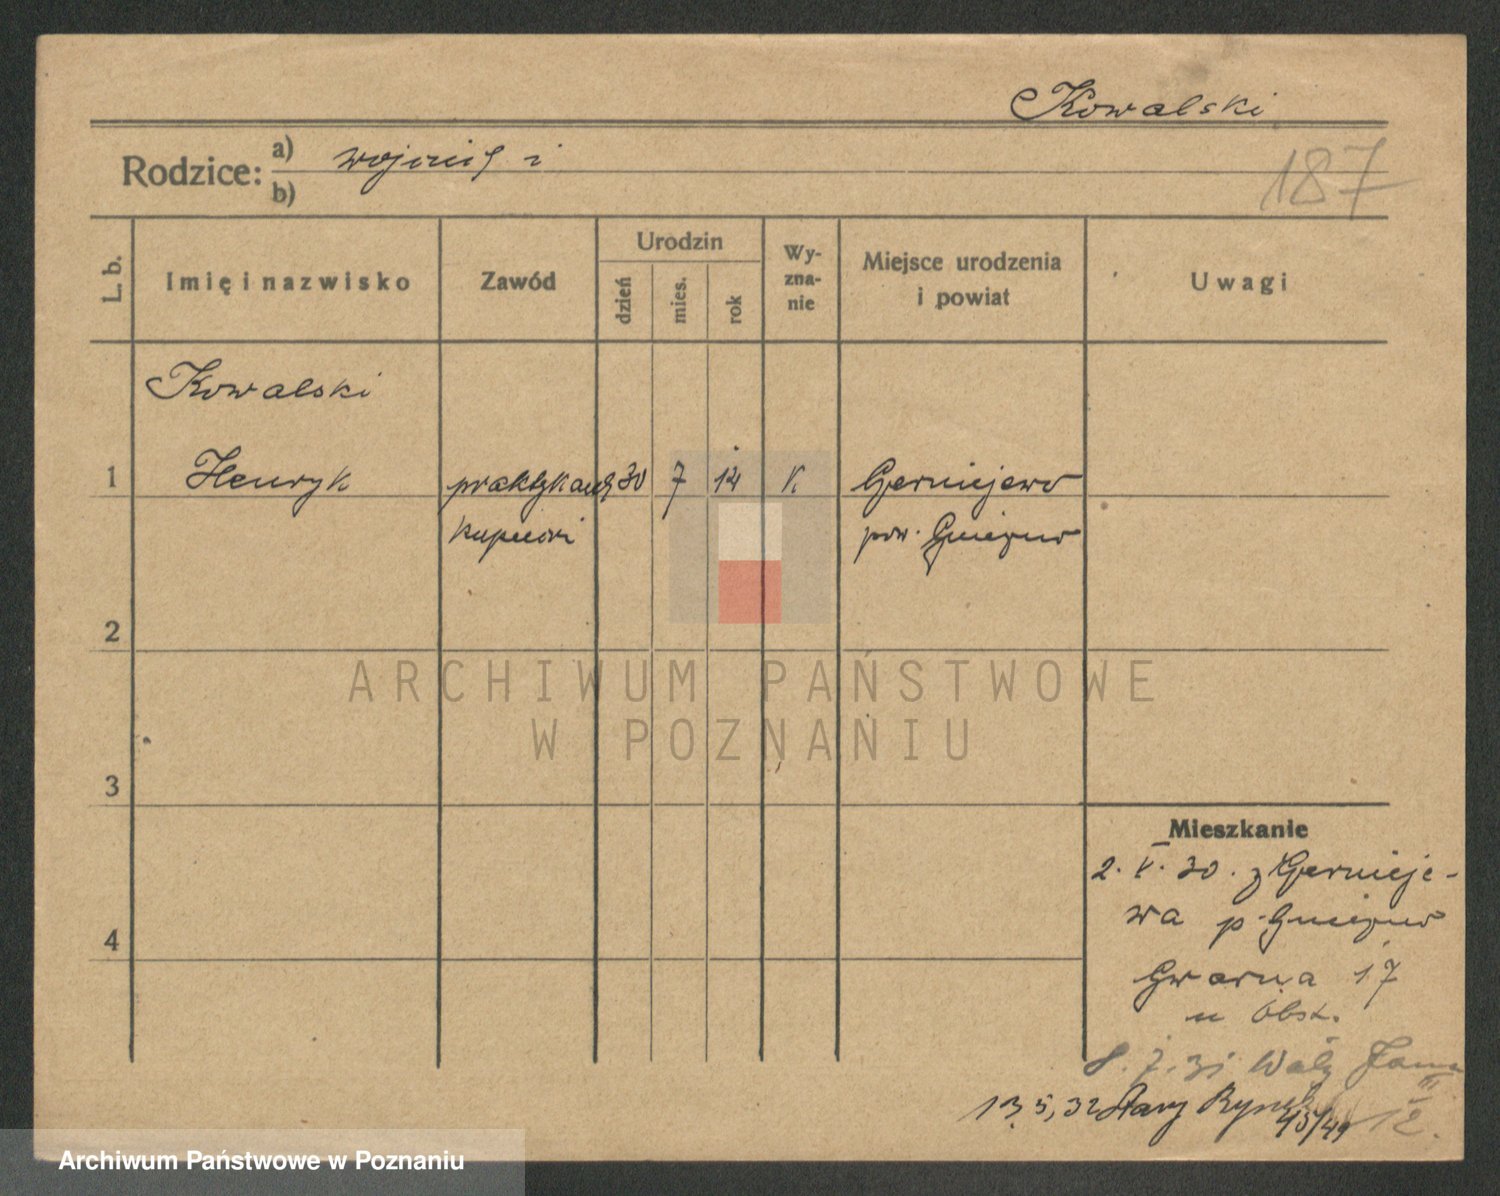 Kowalski
187
Rodzice: a) b)
L. b. Imię i nazwisko Zawód Urodzin dzień mies. rok Wy-zna-nie Miejsce urodzenia i powiat Uwagi
Kowalski
1 Henryk praktykant 30 7 14 K Czerniejewo
kupiecki pow. Gniezno
2
3
4
Mieszkanie
2. V. 30. z Czernieje-
wa p. Gniezno
Gwarna 17
u Obst.
8. 7. 31 Wały Jana III
12.
13. 5, 32 Stary Rynek
ARCHIWUM PAŃSTWOWE
W POZNANIU
Archiwum Państwowe w Poznaniu